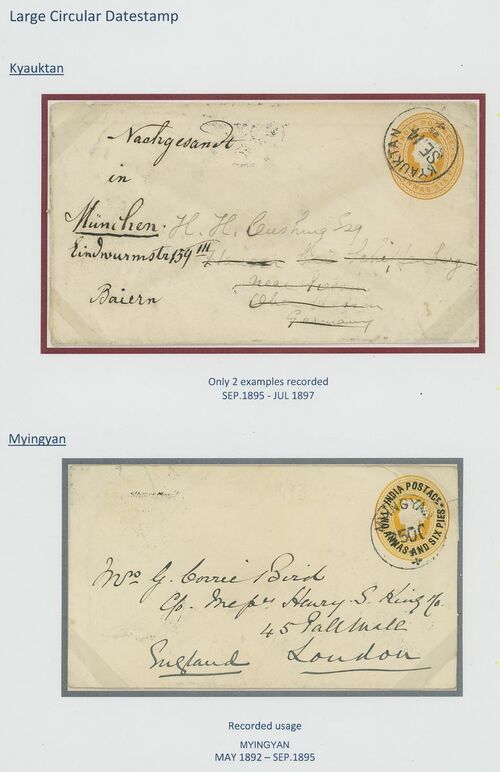 Large Circular Datestamp
Kyauktan
Nachgesandt
in
München. H. H. Cushing Esq
Lindwurmstr 159 III
Baiern
near
Germany
KYAUKTAN
SE
Only 2 examples recorded
SEP.1895 - JUL 1897
Myingyan
INDIA POSTAGE
TWO ANNAS AND SIX PIES
MYINGYAN
Mrs G. Corrie Bird
C/o. Messrs Henry S. King Co.
45 Pall Mall
England London
Recorded usage
MYINGYAN
MAY 1892 – SEP.1895